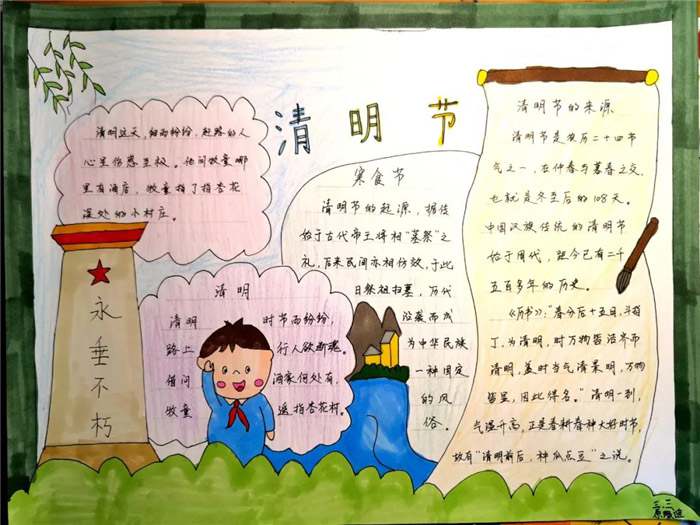 清明节
清明这天,细雨纷纷,赶路的人
心里伤感至极。他问牧童哪
里有酒店,牧童指了指杏花
深处的小村庄。
永垂不朽
清明
清明时节雨纷纷,
路上行人欲断魂。
借问酒家何处有,
牧童遥指杏花村。
寒食节
清明节的起源,据传
始于古代帝王将相“墓祭”之
礼,后来民间亦相仿效,于此
日祭祖扫墓,历代
沿袭而成
为中华民族
一种固定
的风
俗。
清明节的来源
清明节是农历二十四节
气之一,在仲春与暮春之交,
也就是冬至后的108天。
中国汉族传统的清明节
始于周代,距今已有二千
五百多年的历史。
《历书》:“春分后十五日,斗指
丁,为清明,时万物皆洁齐而
清明,盖时当气清景明,万物
皆显,因此得名。”清明一到,
气温升高,正是春耕春种大好时节,
故有“清明前后,种瓜点豆”之说。
三.三